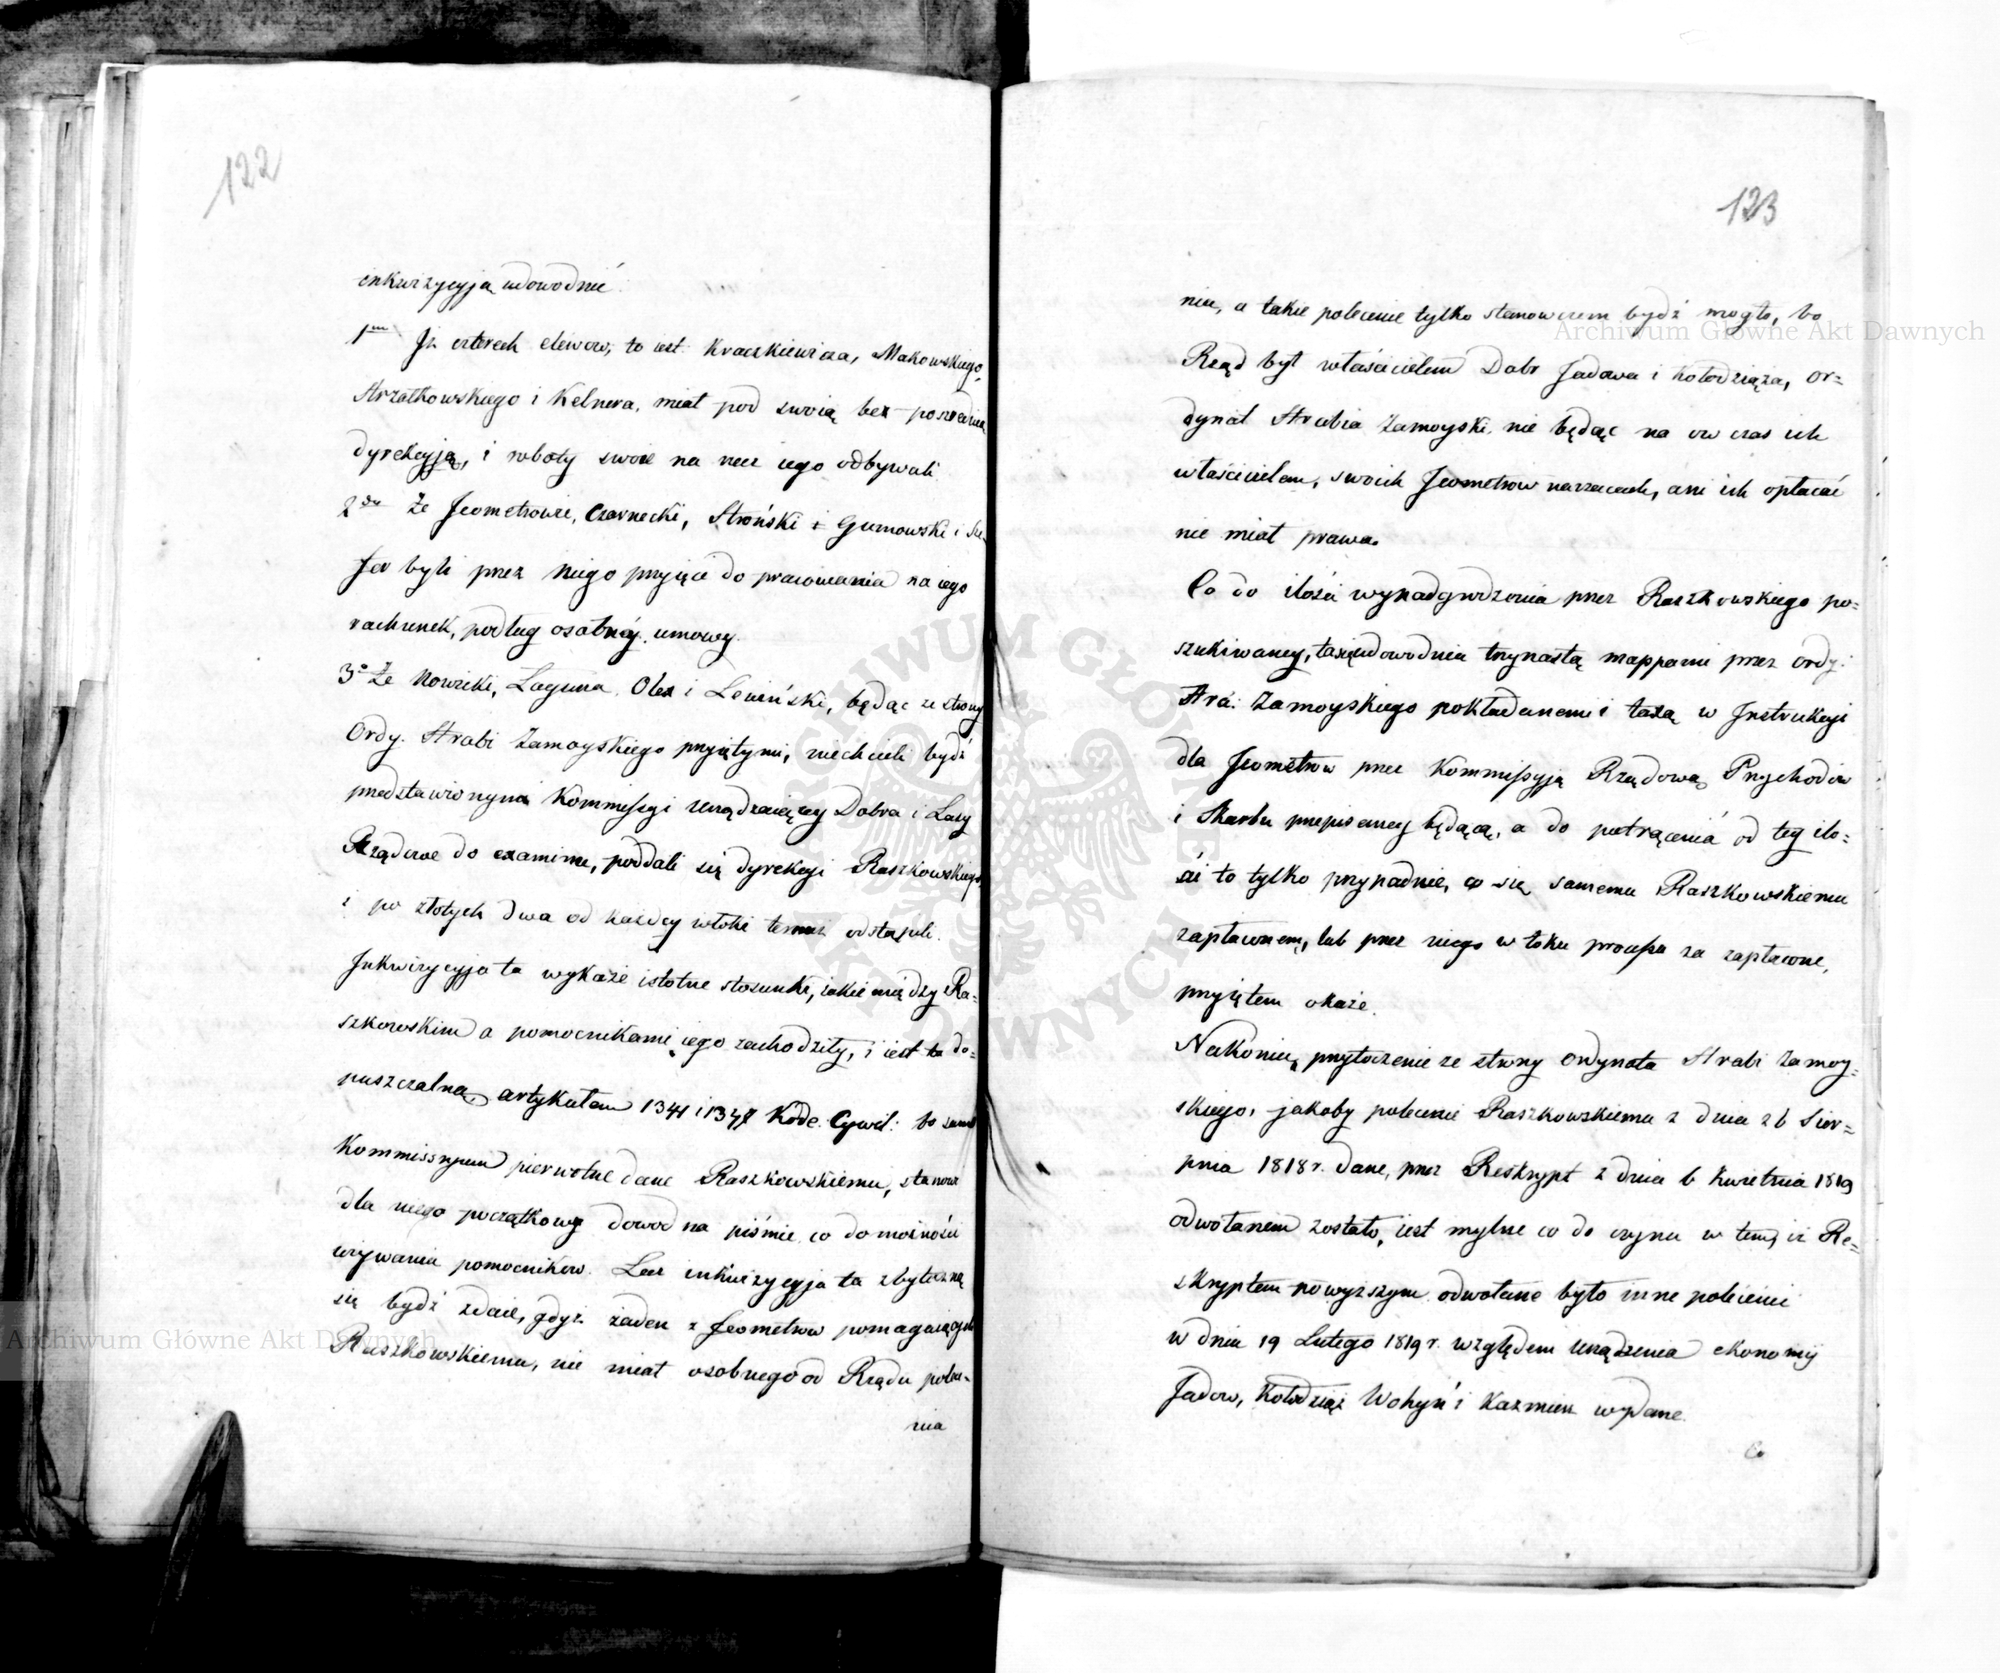 122
inkwizycyją udowodnić.
1mo Iż czterech elewow, to iest Kraczkiewicza, Makowskiego,
Strzałkowskiego i Kelnera, miał pod swoią bez-pośrednią
dyrekcyją, i roboty swoie na rzecz iego odbywali.
2do Że Jeometrowie, Czarnecki, Stroński i Gumowski i
byli przez niego przyięci do pracowania na iego
rachunek, podług osobnéj umowy.
3o Że Nowicki, Laguna, Olex i Lewiński, będąc ze strony
Ordy. Hrabi Zamoyskiego przyiętymi, niechcieli bydź
przedstawionymi Kommissyi urządzaiącey Dobra i Lasy
Rządowe do examinu, poddali się dyrekcyi Raszkowskiego,
i po złotych dwa od każdey włoki temuż odstąpili.
Inkwizycyja ta wykaże istotne stosunki, iakie między Ra=
szkowskim a pomocnikami iego zachodziły, i iest to do=
puszczalną, artykułem 1341 i 1347 Kode. Cywil: bo samo
Kommissoryum pierwotne dane Raszkowskiemu, stanowi
dla niego początkowy dowod na piśmie co do możności
używania pomocnikow. Lecz inkwizycyja ta zbyteczną
się bydź zdaie, gdyż żaden z Jeometrow pomagaiących
Raszkowskiemu, nie miał osobnego od Rządu polece=
nia
123
nia, a takie polecenie tylko stanowczem bydź mogło, bo
Rząd był właścicielem Dobr Jadowa i Kołodziąża, Or=
dynat Hrabia Zamoyski, nie będąc na ow czas ich
właścicielem, swoich Jeometrow narzucać, ani ich opłacać
nie miał prawa.
Co do ilości wynadgrodzenia przez Raszkowskiego po=
szukiwaney, ta się udowodnia trzynastą mappami przez Ordy:
Hra: Zamoyskiego pokładanemi i taxą w Instrukcyi
dla Jeometrow przez Kommissyją Rządową Przychodów
i Skarbu przepisaney będącą, a do potrącenia od tey ilo=
ści to tylko przypadnie, co się samemu Raszkowskiemu
zapłaconem, lub przez niego w toku processu za zapłacone,
przyiętem okaże.
Nakoniec, przytoczenie ze strony Ordynata Hrabi Zamoy=
skiego, jakoby polecenie Raszkowskiemu z dnia 26 Sier=
pnia 1818 r. dane, przez Reskrypt z dnia 6 Kwietnia 1819
odwołanem zostało, iest mylne co do czynu w tem, iż Re=
skryptem powyższym odwołane było inne polecenie
w dniu 19 Lutego 1819 r. względem urządzenia ekonomij
Jadow, Kołodziąż Wohyń i Kazmierz wydane.
Co
Archiwum Główne Akt Dawnych
Archiwum Główne Akt Dawnych
ARCHIWUM GŁÓWNE AKT DAWNYCH